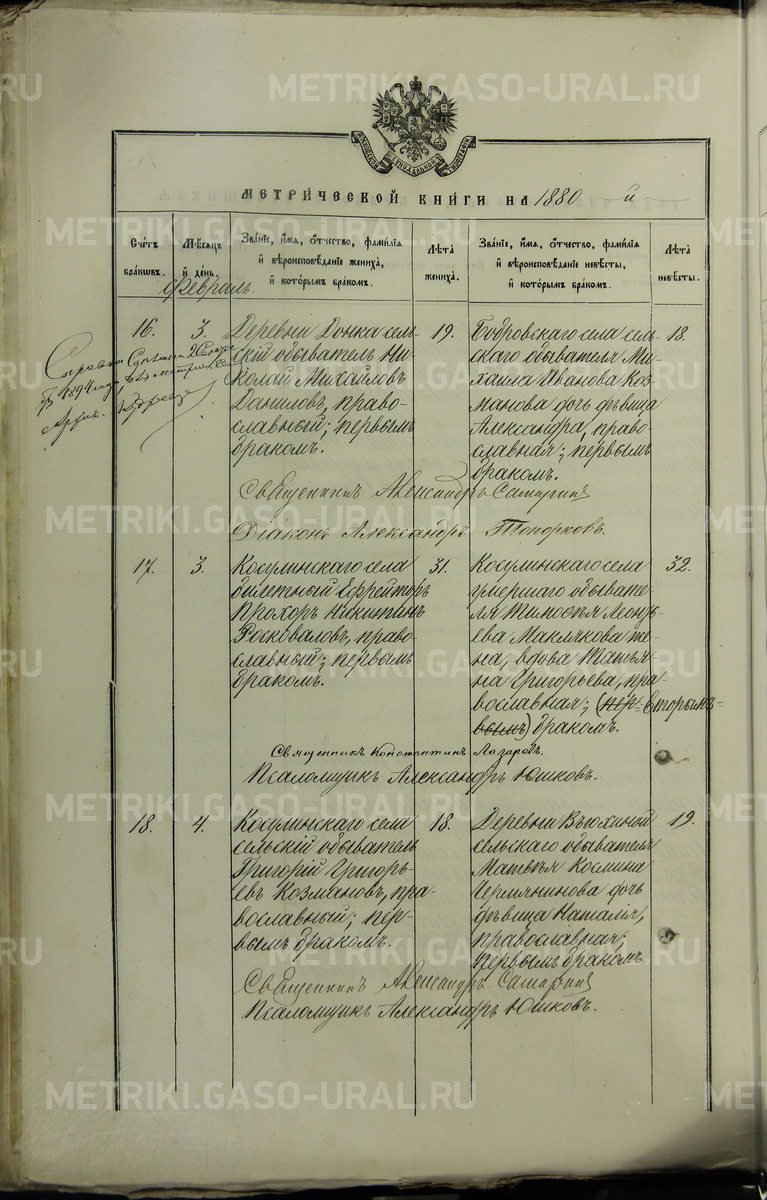 METRIKI.GASO-URAL.RU
МОСКОВСКОЙ СИНОДАЛЬНОЙ ТИПОГРАФІИ
МЕТРИЧЕСКОЙ КНИГИ НА 1880 й
Счетъ браковъ.
Мѣсяцъ и день.
Званіе, имя, отчество, фамилія и вѣроисповѣданіе жениха, и которымъ бракомъ.
Лѣта жениха.
Званіе, имя, отчество, фамилія и вѣроисповѣданіе невѣсты, и которымъ бракомъ.
Лѣта невѣсты.
Февраль.
16.
3.
Деревни Донка сель-
скій обыватель Ни-
колай Михайловъ
Даниловъ, право-
славный; первымъ
бракомъ.
19.
Бобровскаго села сель-
скаго обывателя Ми-
хаила Иванова Коз-
манова дочь дѣвица
Александра, право-
славная; первымъ
бракомъ.
18.
Справка
1894 года
Священникъ Александръ
Діаконъ Александръ Топорковъ.
17.
3.
Косулинскаго села
билетный Ефрейторъ
Прохоръ Никитинъ
право-
славный; первымъ
бракомъ.
31.
Косулинскаго села
умершаго обывате-
ля Тимоѳея Леонть-
ева Маклакова же-
на, вдова Татья-
на Григорьева, пра-
вославная; (пер- вторымъ
вымъ) бракомъ.
32.
Священникъ Константинъ Лазаревъ.
Псаломщикъ Александръ Юшковъ.
18.
4.
Косулинскаго села
сельскій обыватель
Григорій Григорь-
евъ Козмановъ, пра-
вославный; пер-
вымъ бракомъ.
18.
Деревни Вьюхиной
сельскаго обывателя
Матвѣя Космина
дочь
дѣвица Наталія,
православная;
первымъ бракомъ.
19.
Священникъ Александръ
Псаломщикъ Александръ Юшковъ.